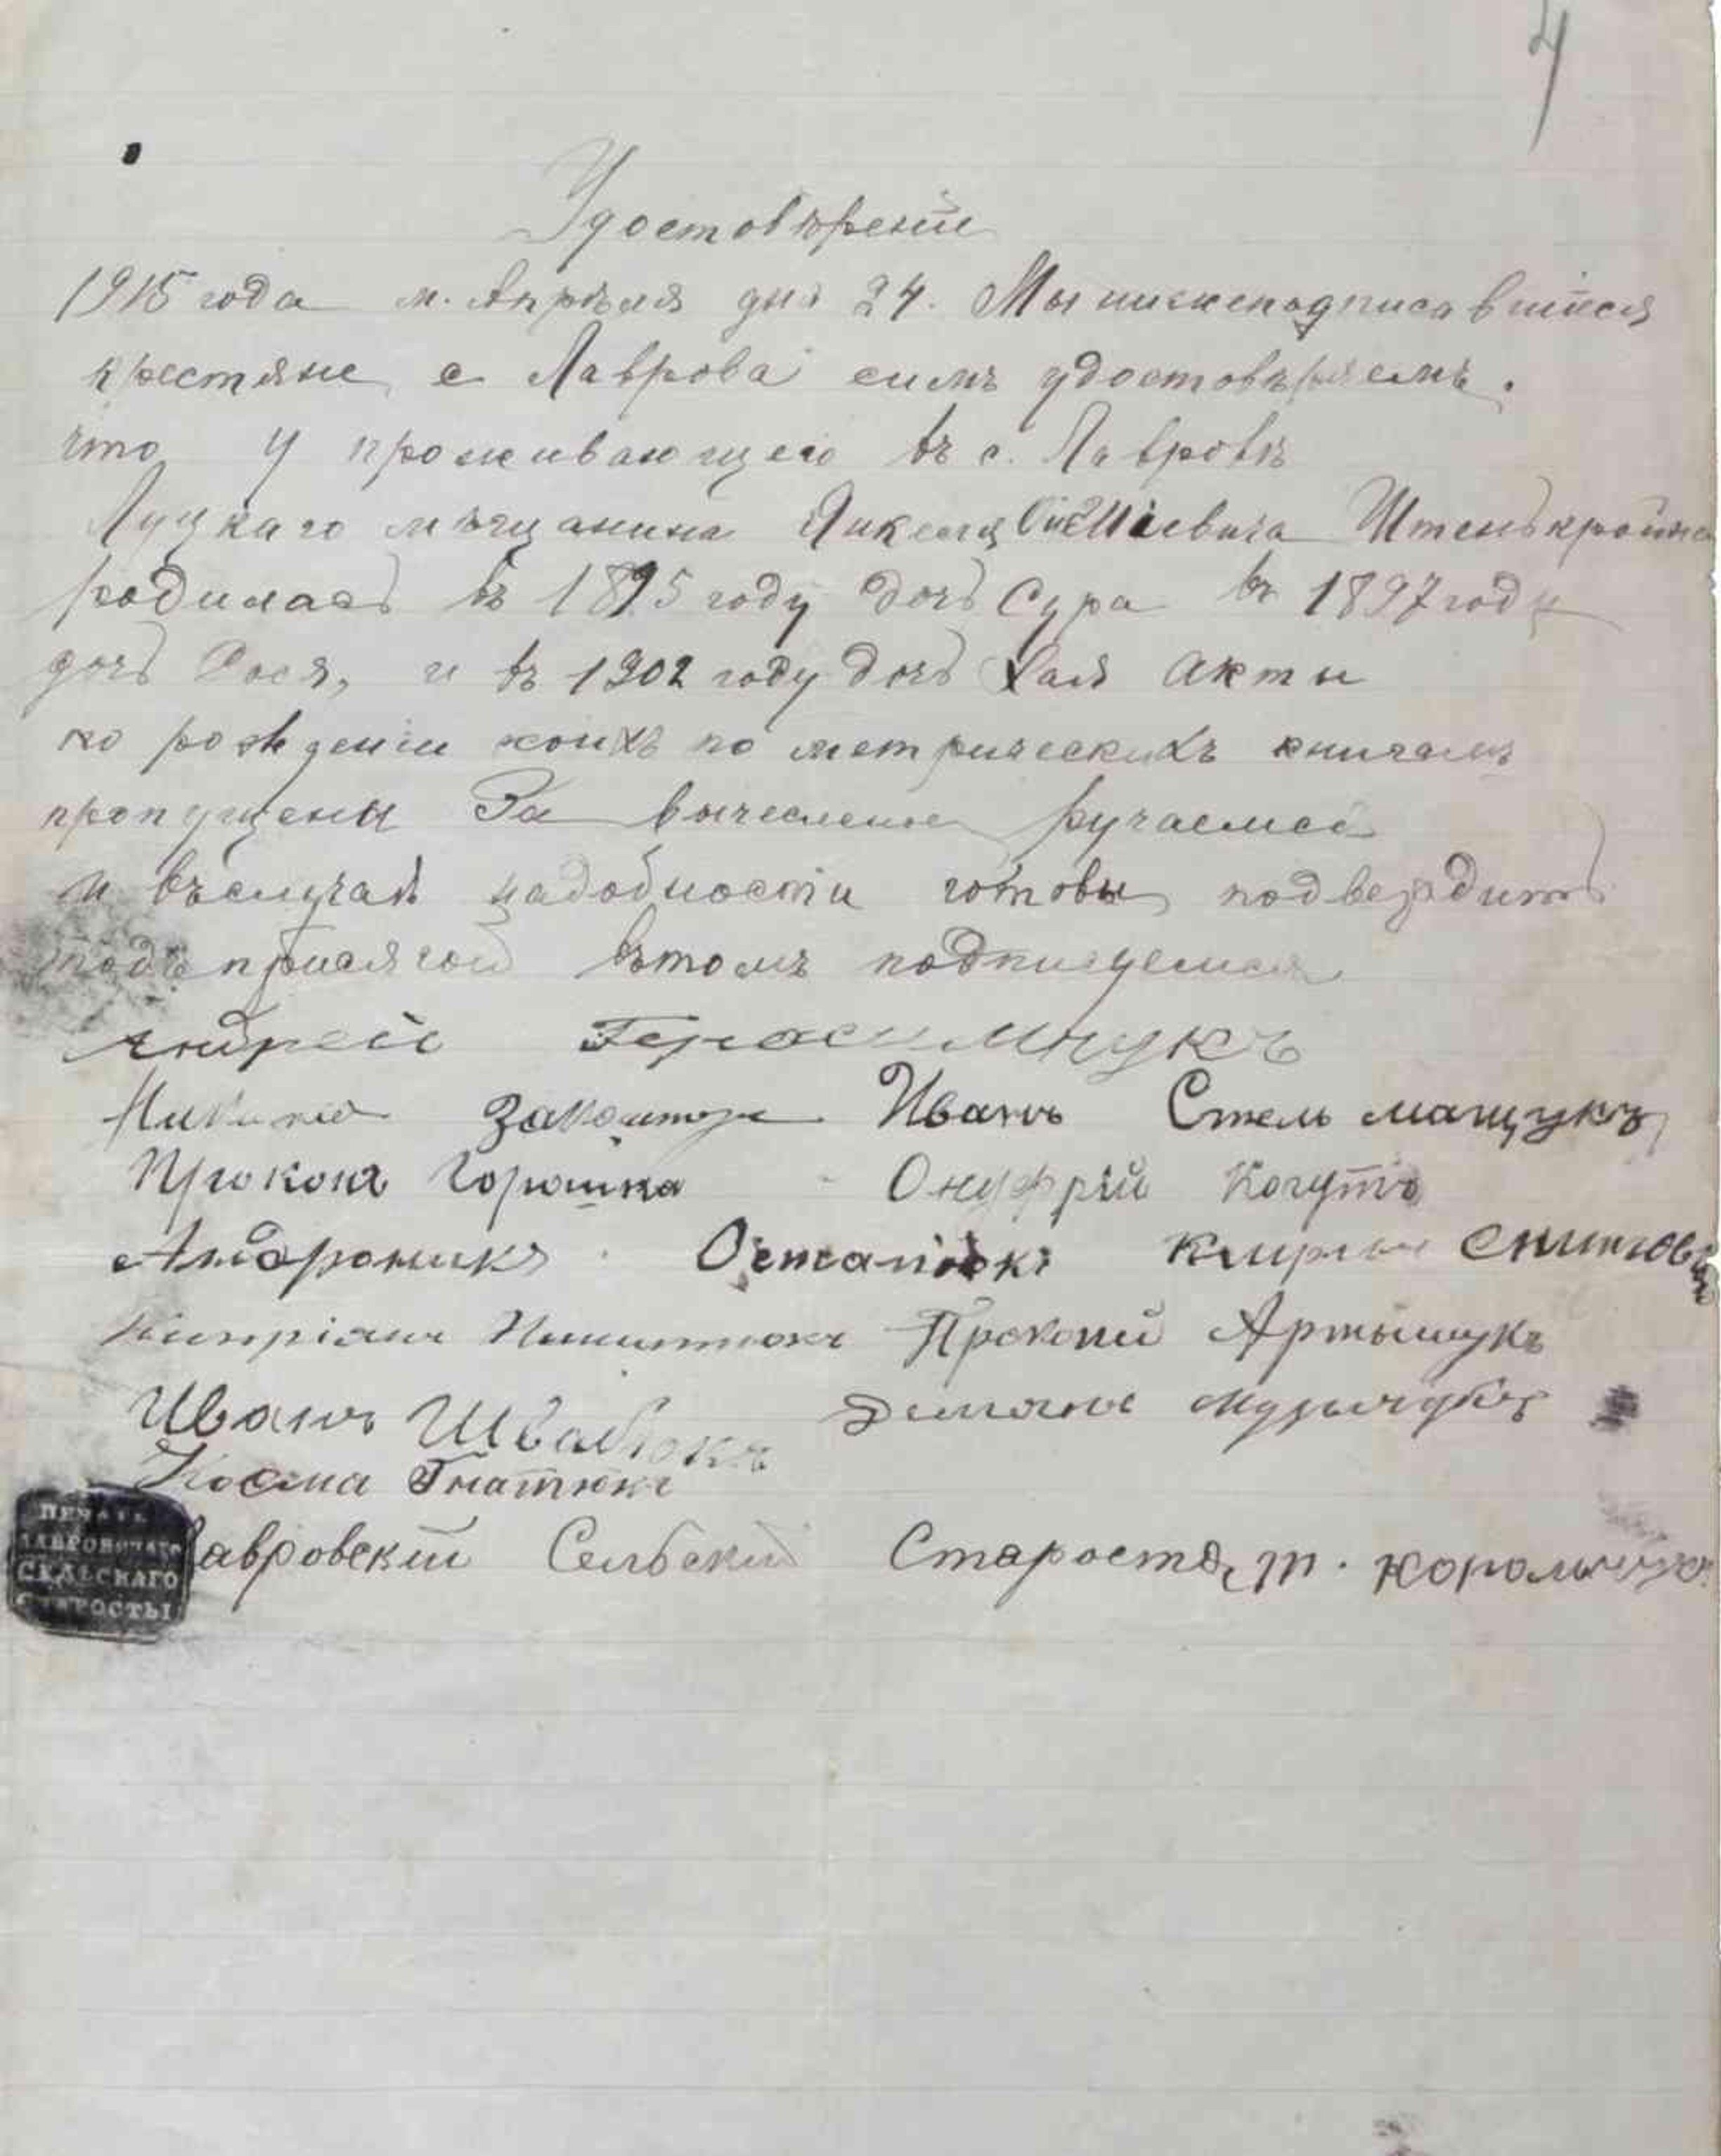 4
Удостовѣреніе
1915 года м. Апрѣля дня 24. Мы нижеподписавшіеся
крестяне с Лаврова симъ удостовѣряемъ.
что у проживающего въ с. Лавровѣ
Луцкаго мѣщанина Янкеля Штенькройна
родилась въ 1895 году дочь Сура въ 1897 году
дочь Рося, и въ 1902 году дочь Хая Акты
о рожденіи коихъ по метрическихъ книгамъ
пропущены За ручаемся
и въслучаѣ надобности готовы подвердить
подъ присягой вътомъ подписуемся
Андрей Герасимчукъ
Иванъ Стельмащукъ
Прокопъ Горошка Онуфрій Когутъ
Андроникъ Остапюкъ
Кипріанъ Никитюкъ Прокопій Артышукъ
Иванъ Швабюкъ Демянъ
Косма Гнатюкъ
Лавровскій Сельскій Староста т. Корольчукъ
ПЕЧАТЬ
ЛАВРОВСКАГО
СЕЛЬСКАГО
СТАРОСТЫ